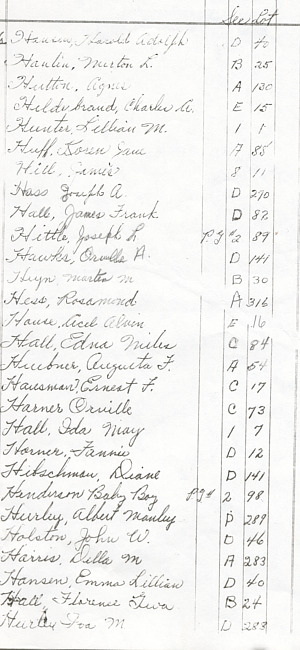 Sec Lot
Hansen, Harold Adolph D 40
Haulin, Merton L. B 25
Hutton, Agnes A 130
Hildebrand, Charles A. E 15
Hunter, Lillian M. 1 1
Huff, Loren Gane A 85
Hill, Jamie 8 11
Hass Joseph A. D 290
Hall, James Frank D 82
Hittle, Joseph L P.G. #2 89
Hawks, Orville A. D 144
Heyn, Martin M B 30
Hess, Rosamond A 316
House, Acel Alvin E 16
Hall, Edna Miles C 84
Huebner, Augusta F. A 54
Hausman Ernest F. C 17
Harner Orville C 73
Hall, Ida May 1 7
Horner, Fannie D 12
Hibschman, Diane D 141
Henderson Baby Boy P.G. # 2 98
Hurley, Albert Manley D 289
Holston, John W. D 46
Harris, Della M A 283
Hansen, Emma Lillian D 40
Hall, Florence Iwa B 24
Hurley Iva M D 288